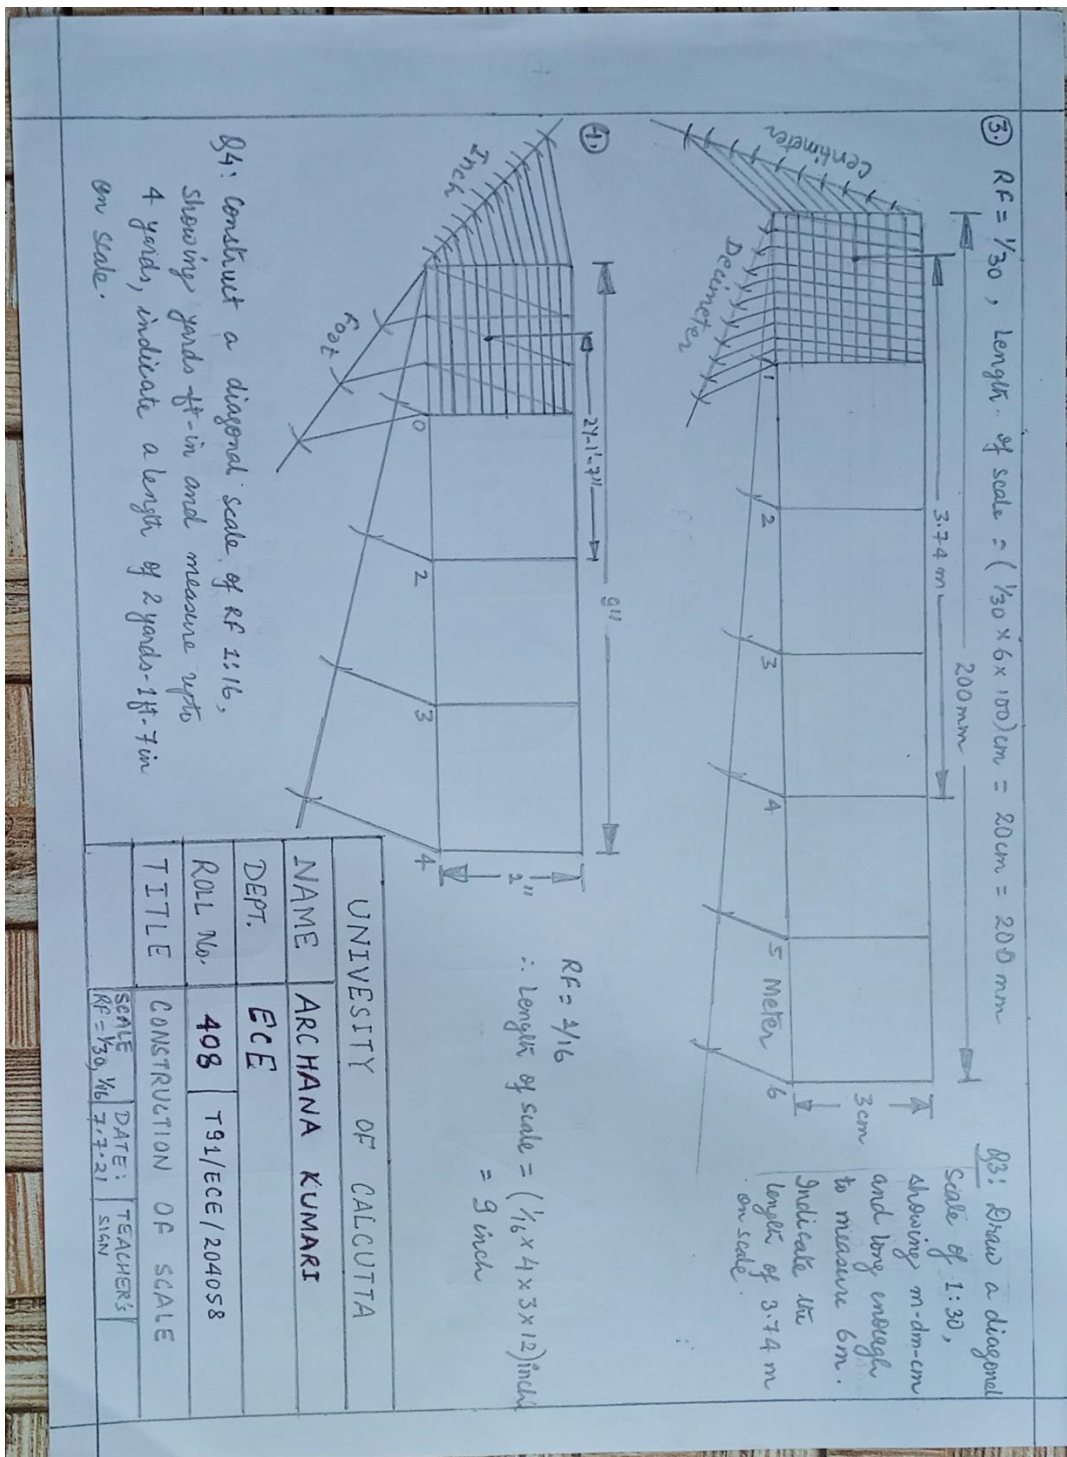 ③. RF = 1/30, Length of scale = (1/30 × 6 × 100) cm = 20 cm = 200 mm
200 mm
3.74 m
Centimeter
Decimeter
1 2 3 4 5 Meter 6
3 cm
Q3: Draw a diagonal
scale of 1:30,
showing m-dm-cm
and long enough
to measure 6m.
Indicate the
length of 3.74 m
on scale.
④.
9"
2Y-1'-7"
Inch
Feet
0 2 3 4
2"
RF = 1/16
∴ Length of scale = (1/16 × 4 × 3 × 12) inch
= 9 inch
Q4: Construct a diagonal scale of RF 1:16,
showing yards-ft-in and measure upto
4 yards, indicate a length of 2 yards-1ft-7in
on scale.
UNIVESITY OF CALCUTTA
NAME ARCHANA KUMARI
DEPT. ECE
ROLL No. 498 T91/ECE/204058
TITLE CONSTRUCTION OF SCALE
SCALE RF = 1/30, 1/16 DATE: 7.7.21 TEACHER'S SIGN